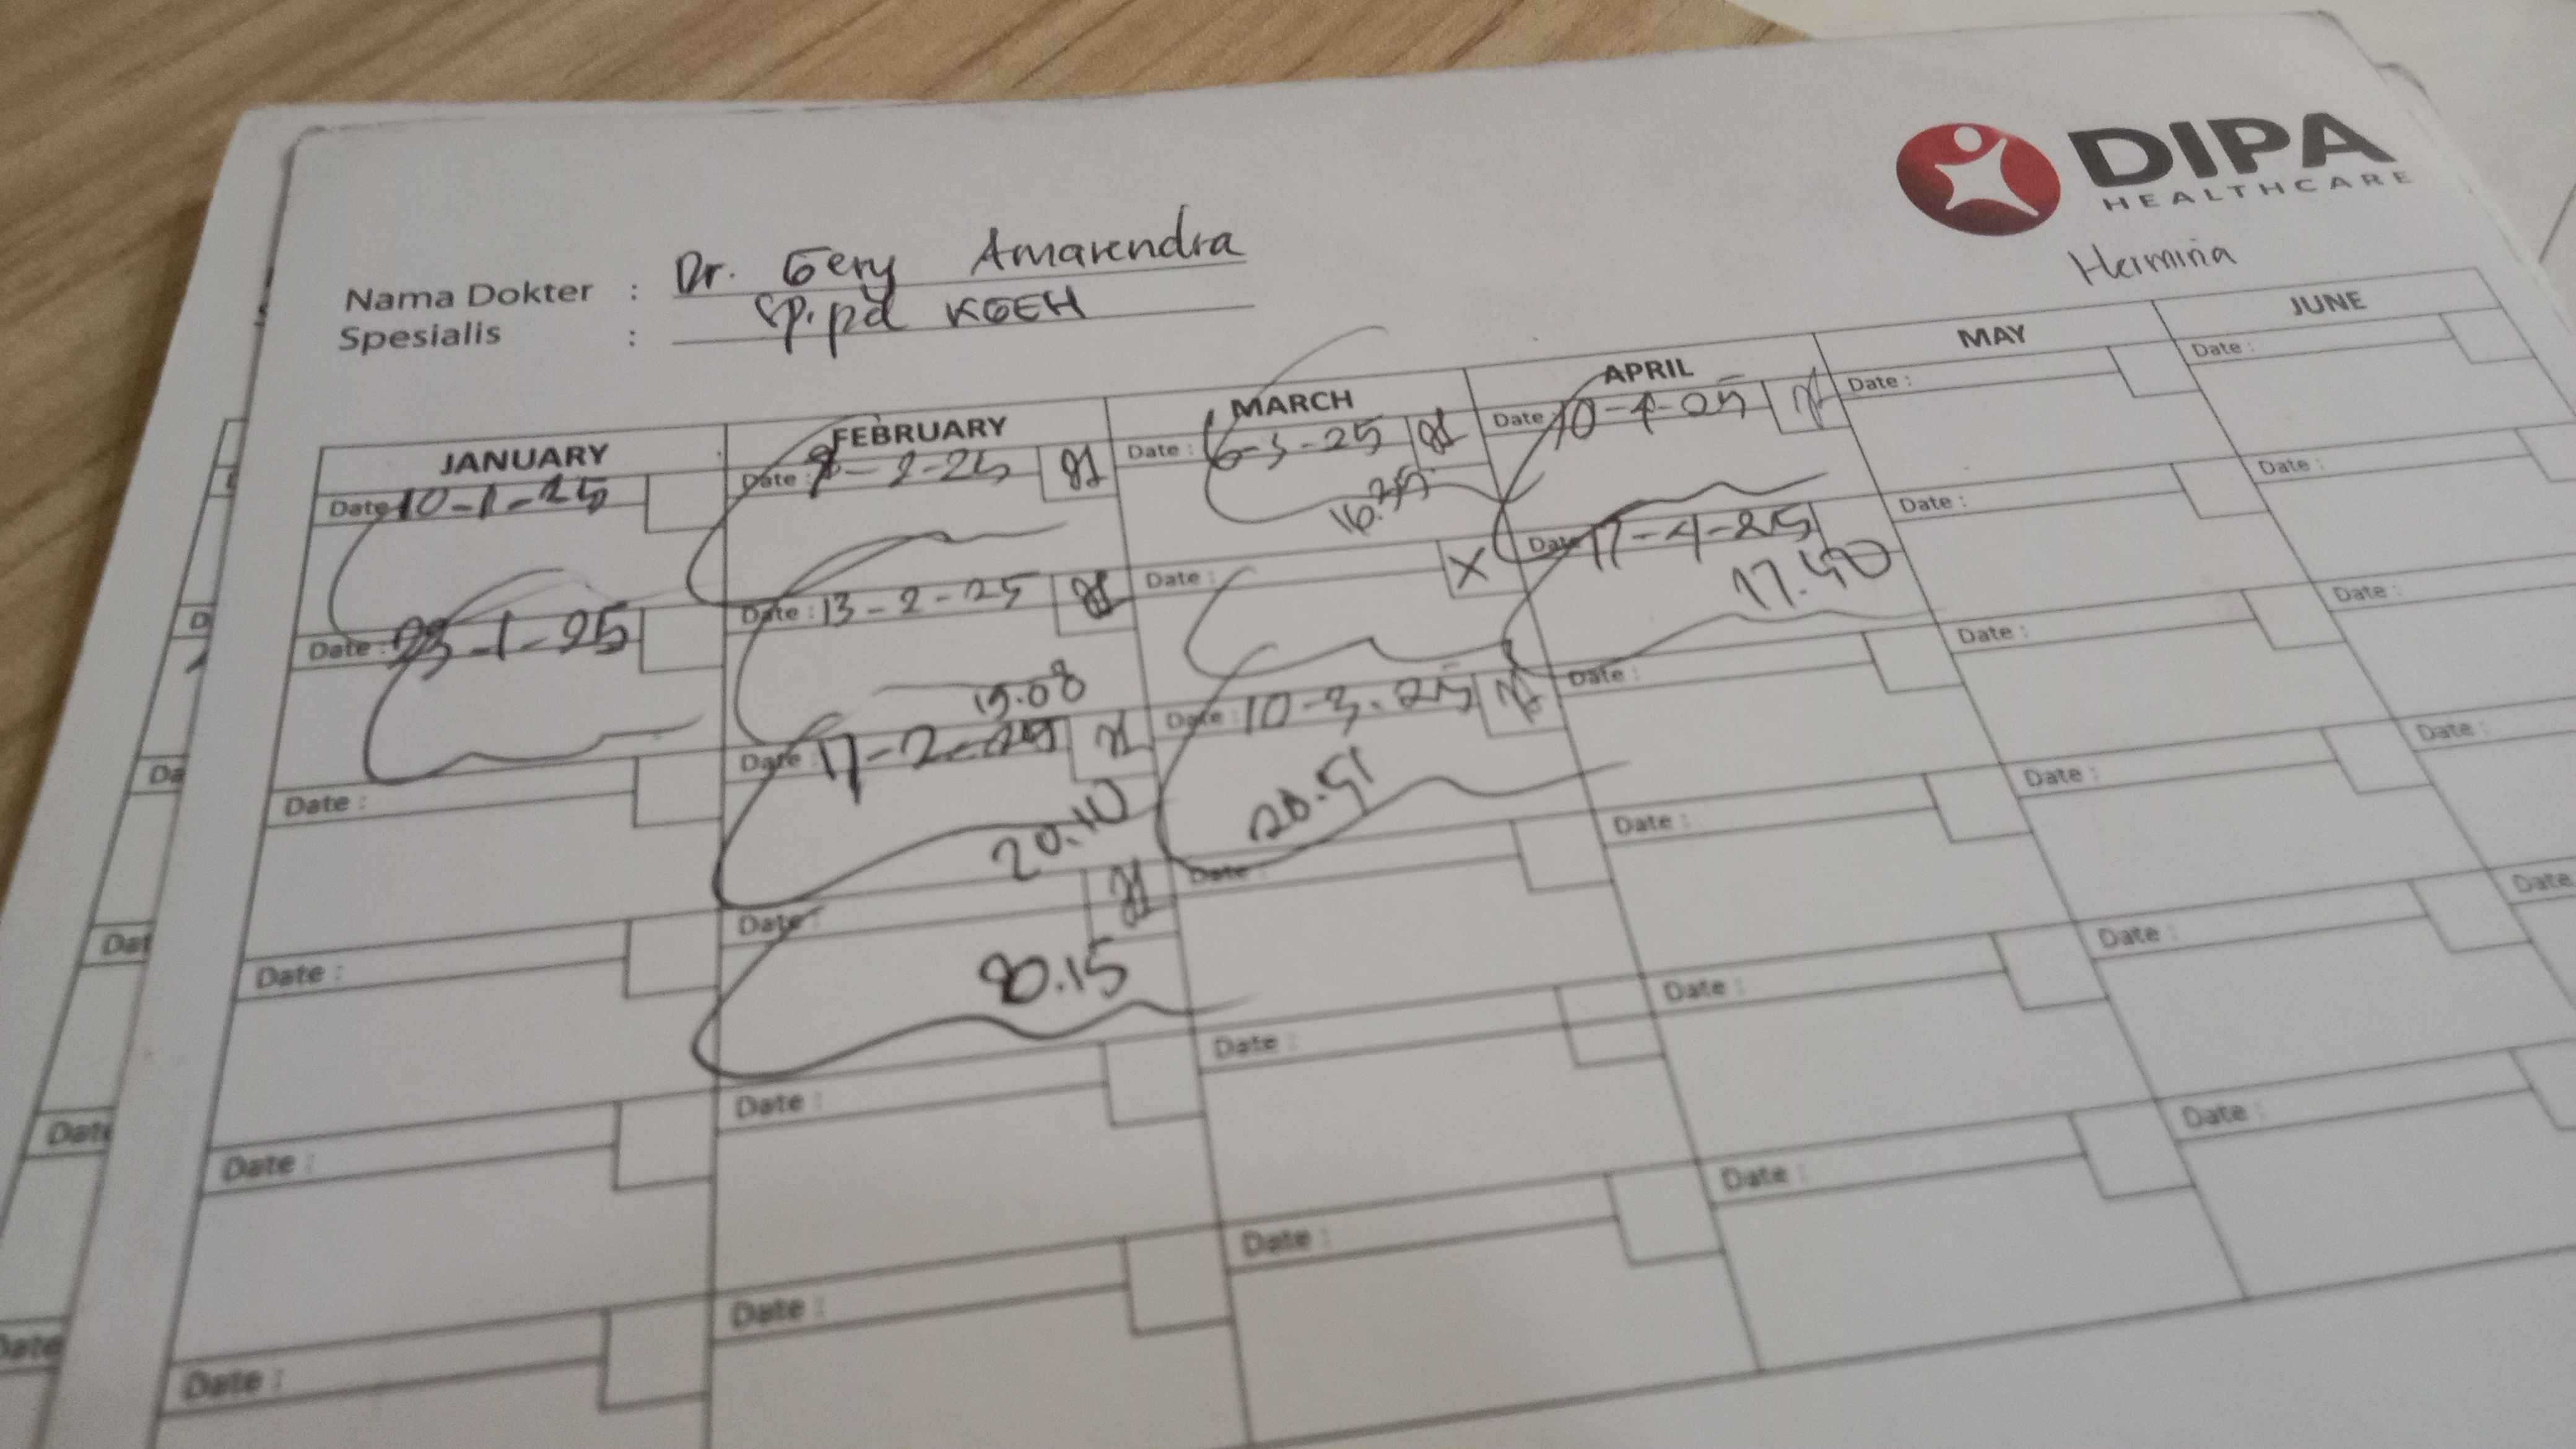 DIPA
HEALTHCARE
Hermina
Nama Dokter : Dr. Gery Amarendra
Spesialis : Sp.pd KGEH
JANUARY FEBRUARY MARCH APRIL MAY JUNE
Date 10-1-25 Date : 2-25 Date : 6-3-25 Date 10-4-25 Date : Date :
16.35
Date : 23-1-25 Date : 13-2-25 Date : X Date 17-4-25 Date : Date :
19.08 17.40
Date : Date 17-2-25 Date : 10-3-25 Date : Date : Date :
20.10 20.51
Date : Date : Date : Date : Date : Date :
20.15
Date : Date : Date : Date : Date : Date
Date : Date : Date : Date : Date :
D
Da
Dat
Date
Date